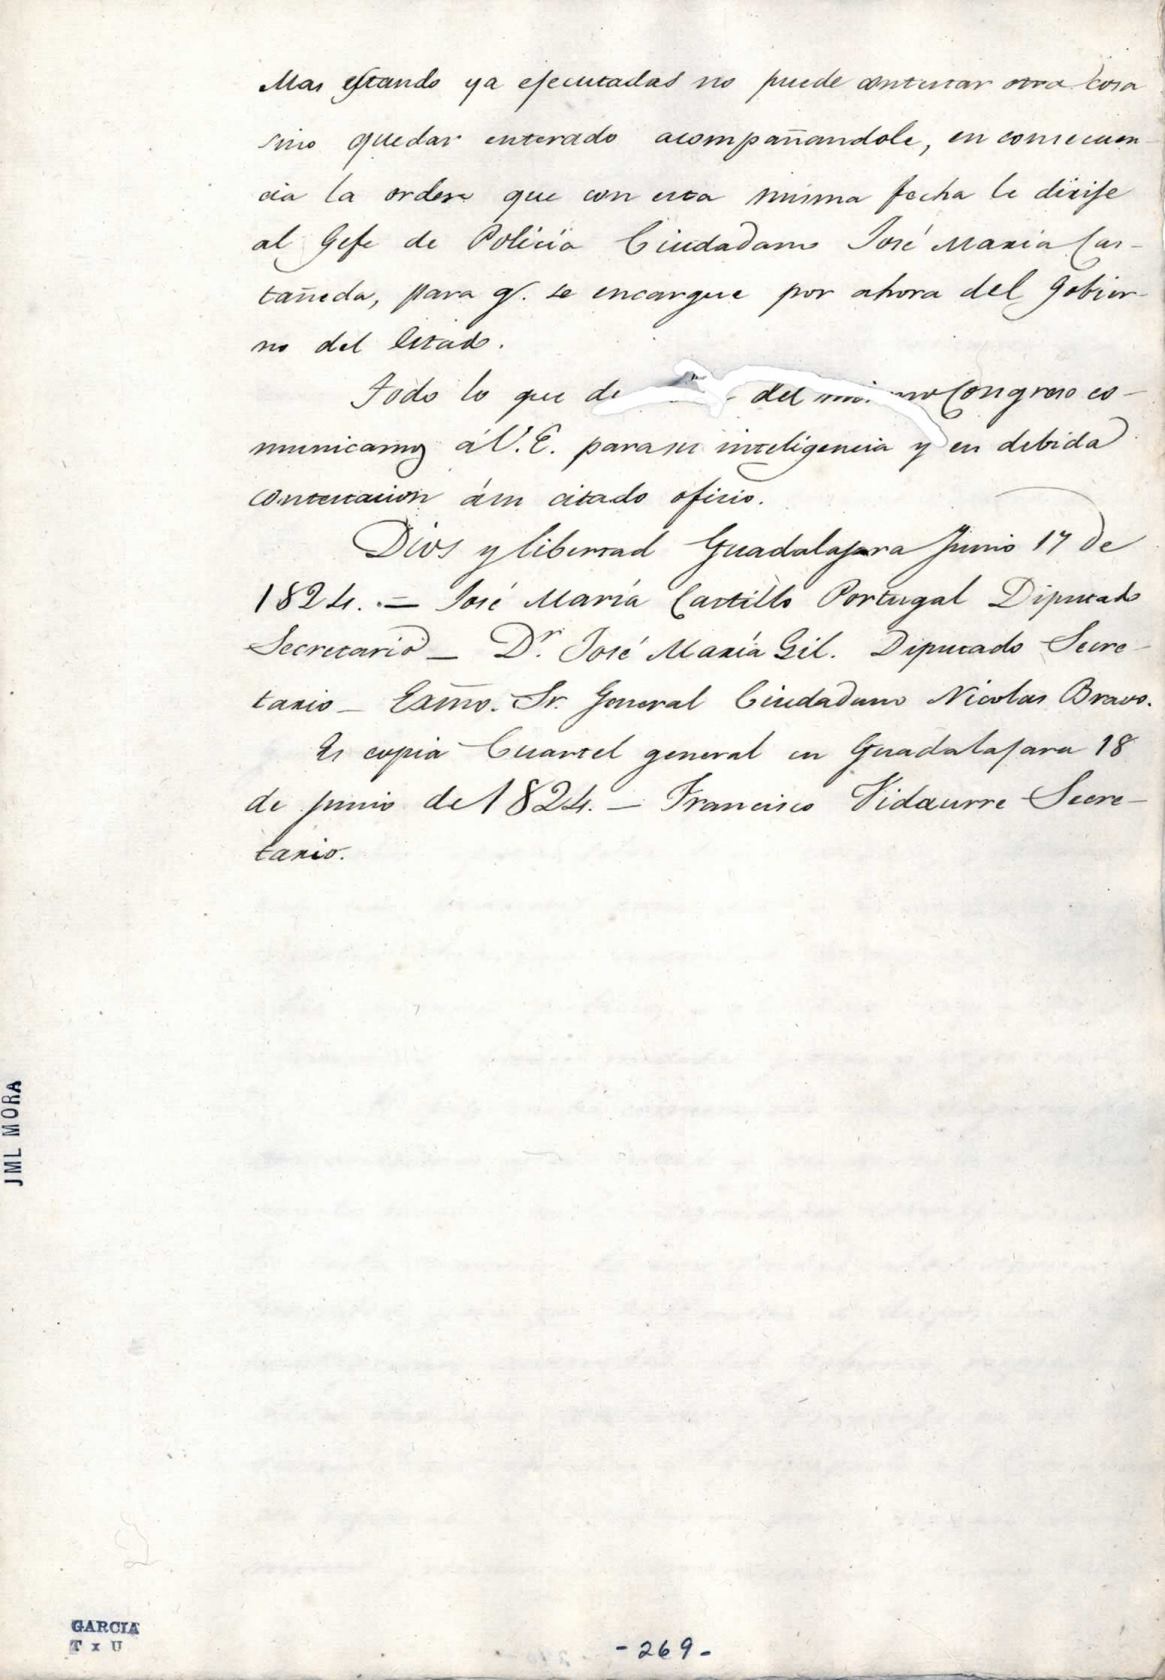 Mas estando ya ejecutadas no puede contestar otra cosa
sino quedar enterado acompañandole, en consecuen-
cia la orden que con esta misma fecha le dirije
al Gefe de Policia Ciudadano José Maria Cas-
tañeda, para q. se encargue por ahora del Gobier-
no del Estado.
Todo lo que de del mismo Congreso co-
municamos á V. E. para su inteligencia y en debida
contestacion á su citado oficio.
Dios y libertad Guadalajara Junio 17 de
1824. = José María Castillo Portugal Diputado
Secretario _ Dr. José María Gil. Diputado Secre-
tario _ Exmo. Sr. General Ciudadano Nicolas Bravo.
Es copia Cuartel general en Guadalajara 18
de junio de 1824. _ Francisco Vidaurre Secre-
tario.
JML MORA
GARCIA
T x U
-269-